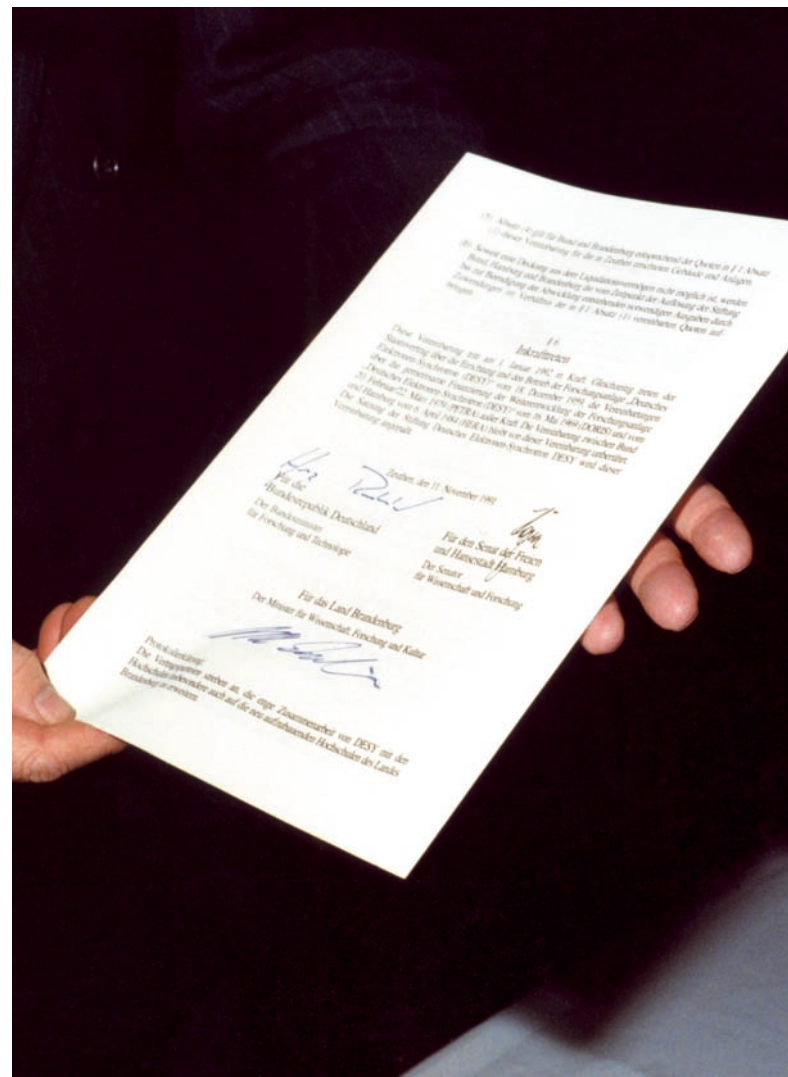 (5) Absatz (4) gilt für Bund und Brandenburg entsprechend der Quoten in § 1 Absatz
(1) dieser Vereinbarung für die in Zeuthen errichteten Gebäude und Anlagen.
(6) Soweit eine Deckung aus dem Liquidationsvermögen nicht möglich ist, werden
Bund, Hamburg und Brandenburg die vom Zeitpunkt der Auflösung der Stiftung
bis zur Beendigung der Abwicklung entstehenden notwendigen Ausgaben durch
Zuwendungen im Verhältnis der in § 1 Absatz (1) vereinbarten Quoten auf-
bringen.
§ 6
Inkrafttreten
Diese Vereinbarung tritt am 1. Januar 1992 in Kraft. Gleichzeitig treten der
Staatsvertrag über die Errichtung und den Betrieb der Forschungsanlage „Deutsches
Elektronen-Synchrotron (DESY)“ vom 18. Dezember 1959, die Vereinbarungen
über die gemeinsame Finanzierung der Weiterentwicklung der Forschungsanlage
„Deutsches Elektronen-Synchrotron (DESY)“ vom 16. Mai 1969 (DORIS) und vom
20. Februar/22. März 1979 (PETRA) außer Kraft. Die Vereinbarung zwischen Bund
und Hamburg vom 6. April 1984 (HERA) bleibt von dieser Vereinbarung unberührt.
Die Satzung der Stiftung Deutsches Elektronen-Synchrotron DESY wird dieser
Vereinbarung angepaßt.
Zeuthen, den 11. November 1991
Für die
Bundesrepublik Deutschland
Der Bundesminister
für Forschung und Technologie
Für den Senat der Freien
und Hansestadt Hamburg
Der Senator
für Wissenschaft und Forschung
Für das Land Brandenburg
Der Minister für Wissenschaft, Forschung und Kultur
Protokollerklärung:
Die Vertragspartner streben an, die enge Zusammenarbeit von DESY mit den
Hochschulen insbesondere auch auf die neu aufzubauenden Hochschulen des Landes
Brandenburg zu erweitern.